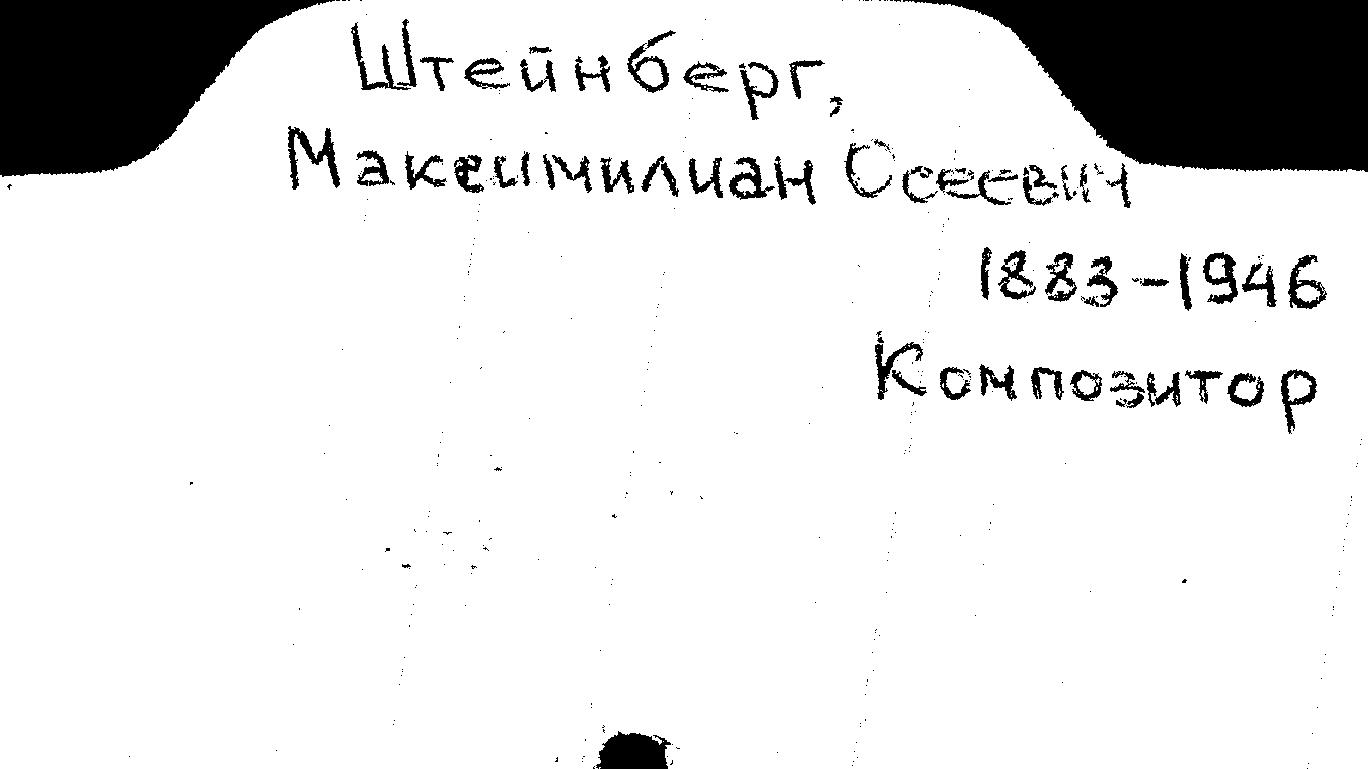 Штейнберг,
Максимилиан Осеевич
1883-1946
Композитор